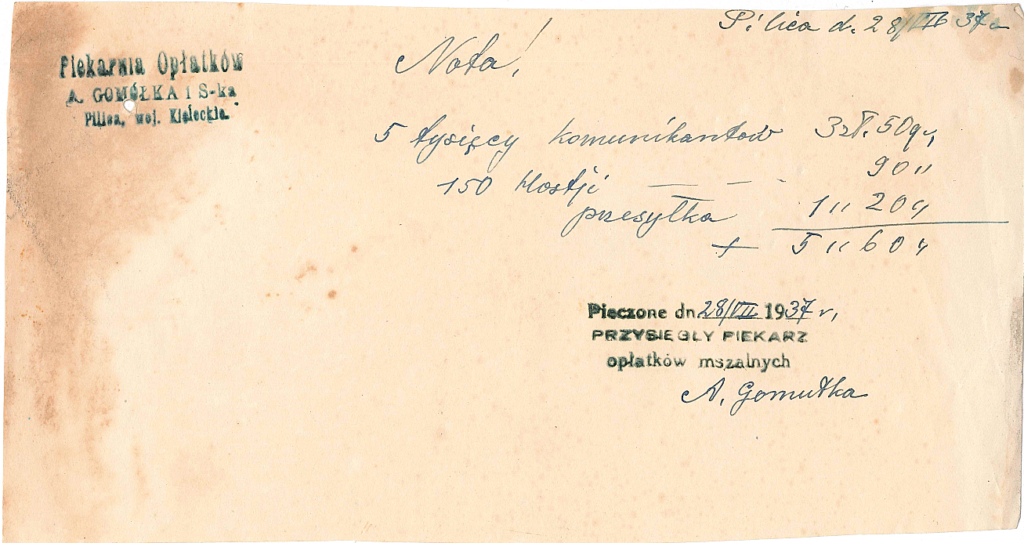 Pilica d. 28/VII 37 r.
Piekarnia Opłatków
A. GOMÓŁKA I S-ka
Pilica, woj. Kieleckie.
Nota!
5 tysięcy komunikantów 3 zł. 50 gr,
150 Hostji — — - 90 "
przesyłka 1 " 20 "
+ 5 " 60 "
Pieczone dn 28/VII 1937 r,
PRZYSIĘGŁY PIEKARZ
opłatków mszalnych
A. Gomułka